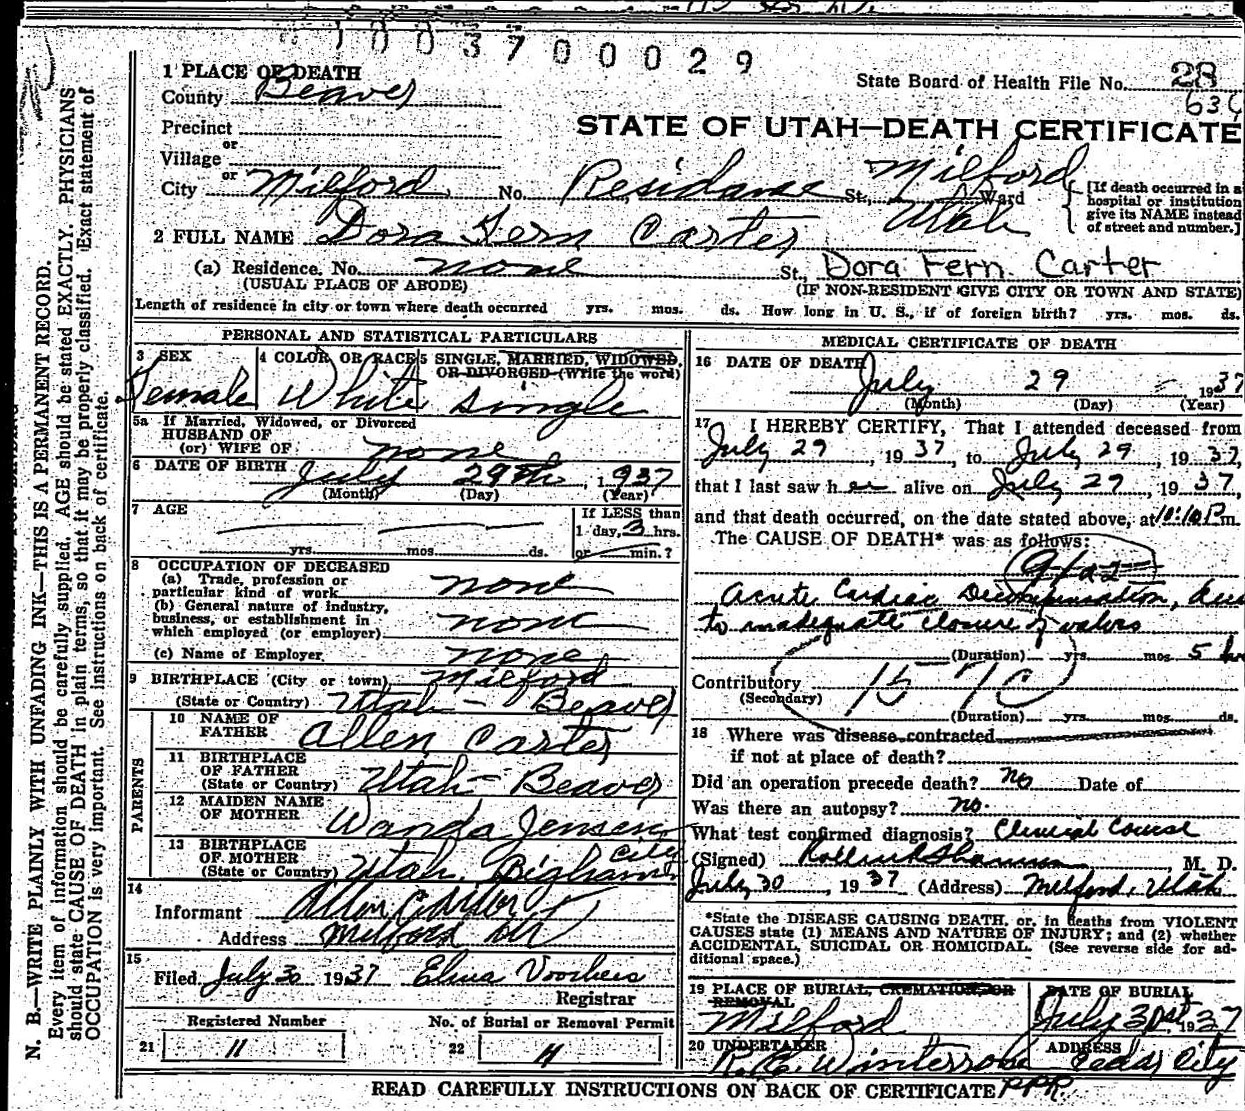 1003700029
1 PLACE OF DEATH
County Beaver
State Board of Health File No. 28
Precinct
or
STATE OF UTAH—DEATH CERTIFICATE
Village
or
City Milford No. Residanse St., Milford Ward
Utah
[If death occurred in a
hospital or institution
give its NAME instead
of street and number.]
2 FULL NAME Dora Fern Carter
(a) Residence. No. none St., Dora Fern Carter
(USUAL PLACE OF ABODE) (IF NON-RESIDENT GIVE CITY OR TOWN AND STATE)
Length of residence in city or town where death occurred yrs. mos. ds. How long in U. S., if of foreign birth? yrs. mos. ds.
PERSONAL AND STATISTICAL PARTICULARS
3 SEX 4 COLOR OR RACE 5 SINGLE, MARRIED, WIDOWED,
OR DIVORCED (Write the word)
Female White single
5a If Married, Widowed, or Divorced
HUSBAND OF
(or) WIFE OF none
6 DATE OF BIRTH July 29th, 1937
(Month) (Day) (Year)
7 AGE If LESS than
1 day, 3 hrs.
yrs. mos. ds. or min.?
8 OCCUPATION OF DECEASED
(a) Trade, profession or
particular kind of work none
(b) General nature of industry,
business, or establishment in
which employed (or employer) none
(c) Name of Employer none
9 BIRTHPLACE (City or town) Milford
(State or Country) Utah - Beaver
PARENTS
10 NAME OF
FATHER Allen Carter
11 BIRTHPLACE
OF FATHER
(State or Country) Utah - Beaver
12 MAIDEN NAME
OF MOTHER Wanda Jensen
13 BIRTHPLACE
OF MOTHER
(State or Country) Utah, Bigham City
14
Informant Allen Carter
Address Milford Ut
15
Filed July 30 1937 Elma Voorhees
Registrar
Registered Number No. of Burial or Removal Permit
21 11 22 H
MEDICAL CERTIFICATE OF DEATH
16 DATE OF DEATH
July 29 1937
(Month) (Day) (Year)
17 I HEREBY CERTIFY, That I attended deceased from
July 29, 1937, to July 29, 1937,
that I last saw her alive on July 29, 1937,
and that death occurred, on the date stated above, at 10:10 P m.
The CAUSE OF DEATH* was as follows:
Acute Cardiac Decompensation, due
to inadequate closure of valves
(Duration) yrs. mos. 5 hrs
Contributory 157C
(Secondary)
(Duration) yrs. mos. ds.
18 Where was disease contracted
if not at place of death?
Did an operation precede death? No Date of
Was there an autopsy? no.
What test confirmed diagnosis? Clinical Course
(Signed) M. D.
July 30, 1937 (Address) Milford, Utah
*State the DISEASE CAUSING DEATH, or, in deaths from VIOLENT
CAUSES state (1) MEANS AND NATURE OF INJURY; and (2) whether
ACCIDENTAL, SUICIDAL OR HOMICIDAL. (See reverse side for ad-
ditional space.)
19 PLACE OF BURIAL, CREMATION, OR
REMOVAL
Milford
DATE OF BURIAL
July 31st, 1937
20 UNDERTAKER ADDRESS
Winterrose Cedar City
READ CAREFULLY INSTRUCTIONS ON BACK OF CERTIFICATE
N. B.—WRITE PLAINLY WITH UNFADING INK—THIS IS A PERMANENT RECORD.
Every item of information should be carefully supplied. AGE should be stated EXACTLY. PHYSICIANS
should state CAUSE OF DEATH in plain terms, so that it may be properly classified. Exact statement of
OCCUPATION is very important. See instructions on back of certificate.